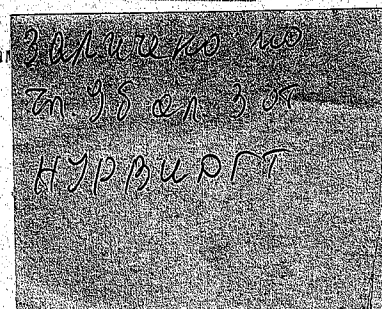 Заличено по
чл ал 3 от
НУРВИДГТ